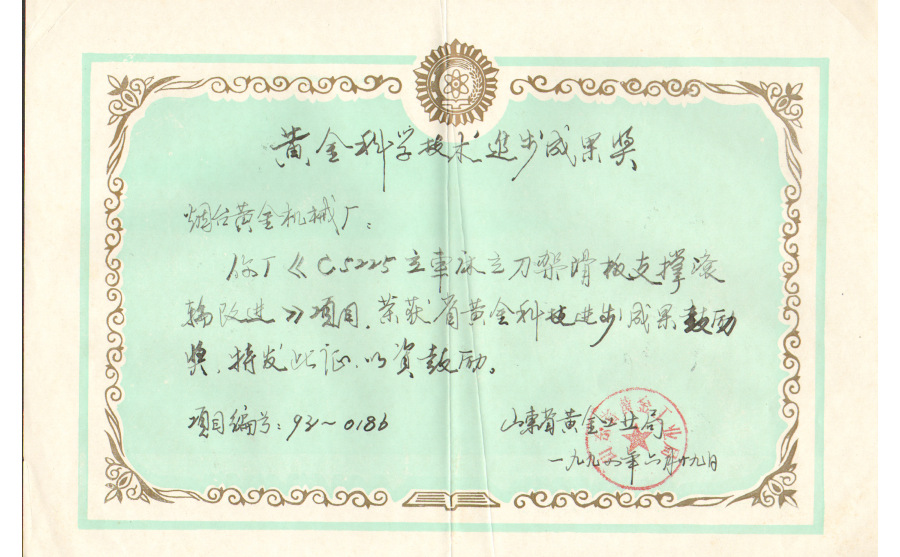 黄金科学技术进步成果奖
烟台黄金机械厂:
你厂《C5225立车床立刀架滑板支撑滚
轮改进》项目,荣获省黄金科技进步成果鼓励
奖,特发此证,以资鼓励。
项目编号:92~0186
山东省黄金工业局
山东省黄金工业局